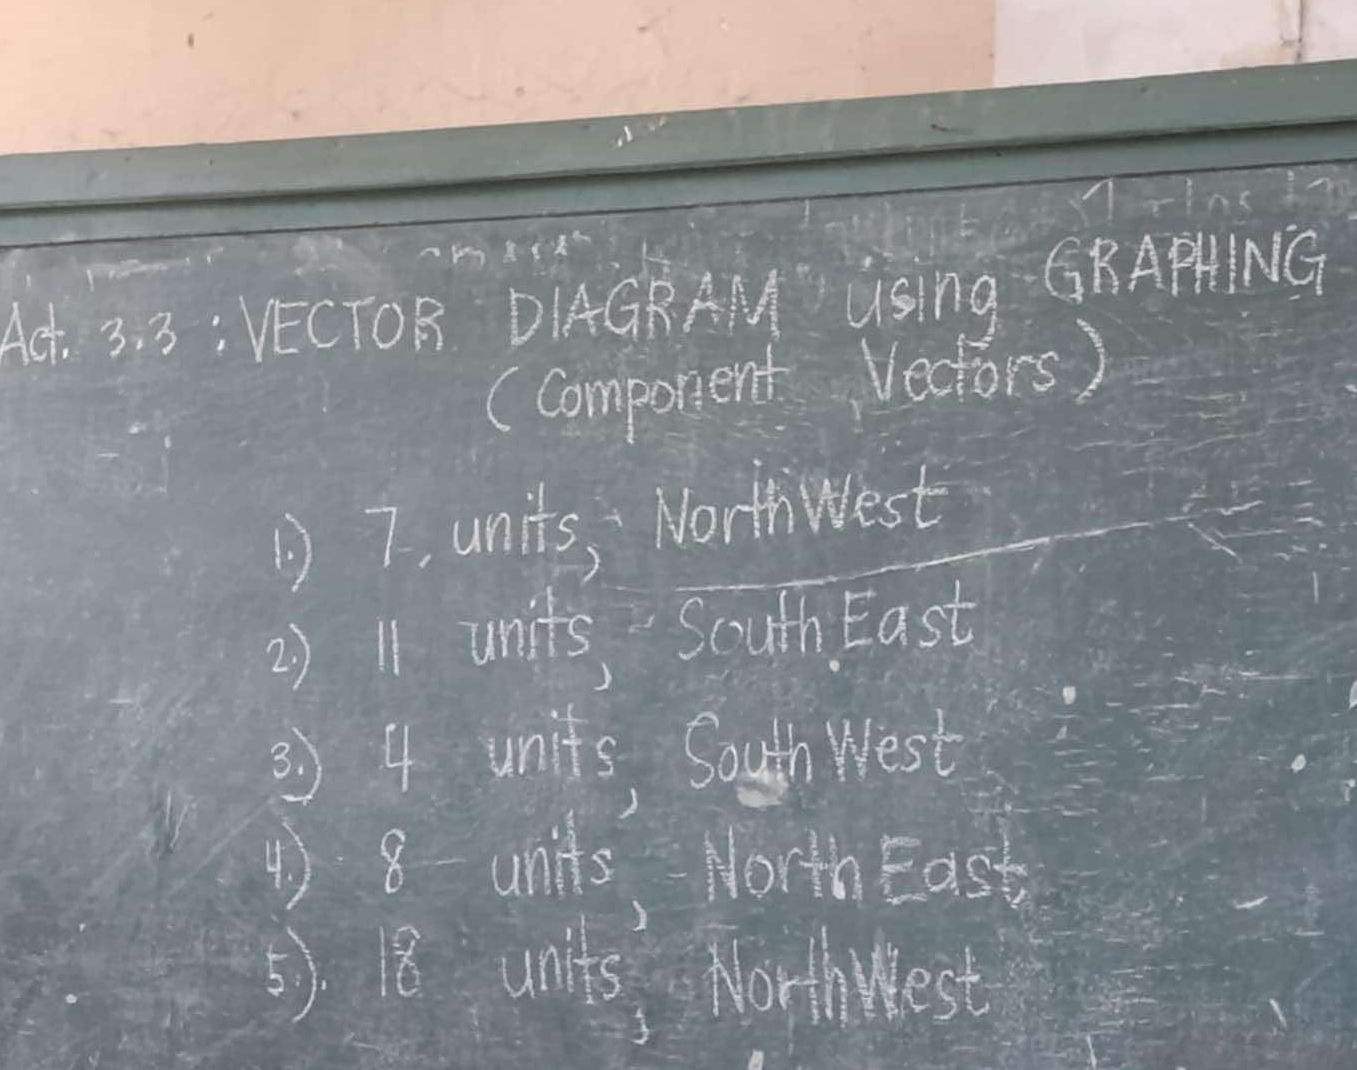 Act. 3.3 : VECTOR DIAGRAM using GRAPHING
(Component Vectors)
1.) 7, units, NorthWest
2.) 11 units, South East
3.) 4 units, South West
4.) 8 units, North East
5.) 18 units, NorthWest